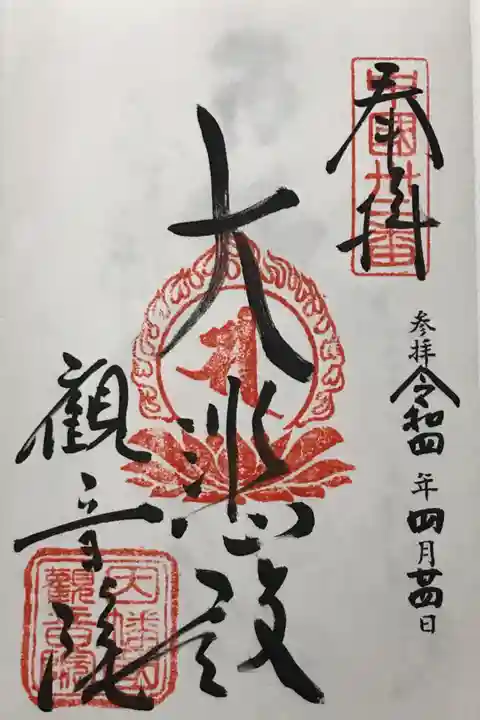 奉拝
参拝 令和四年四月廿四日
大悲殿
觀音院
因幡國
觀音院